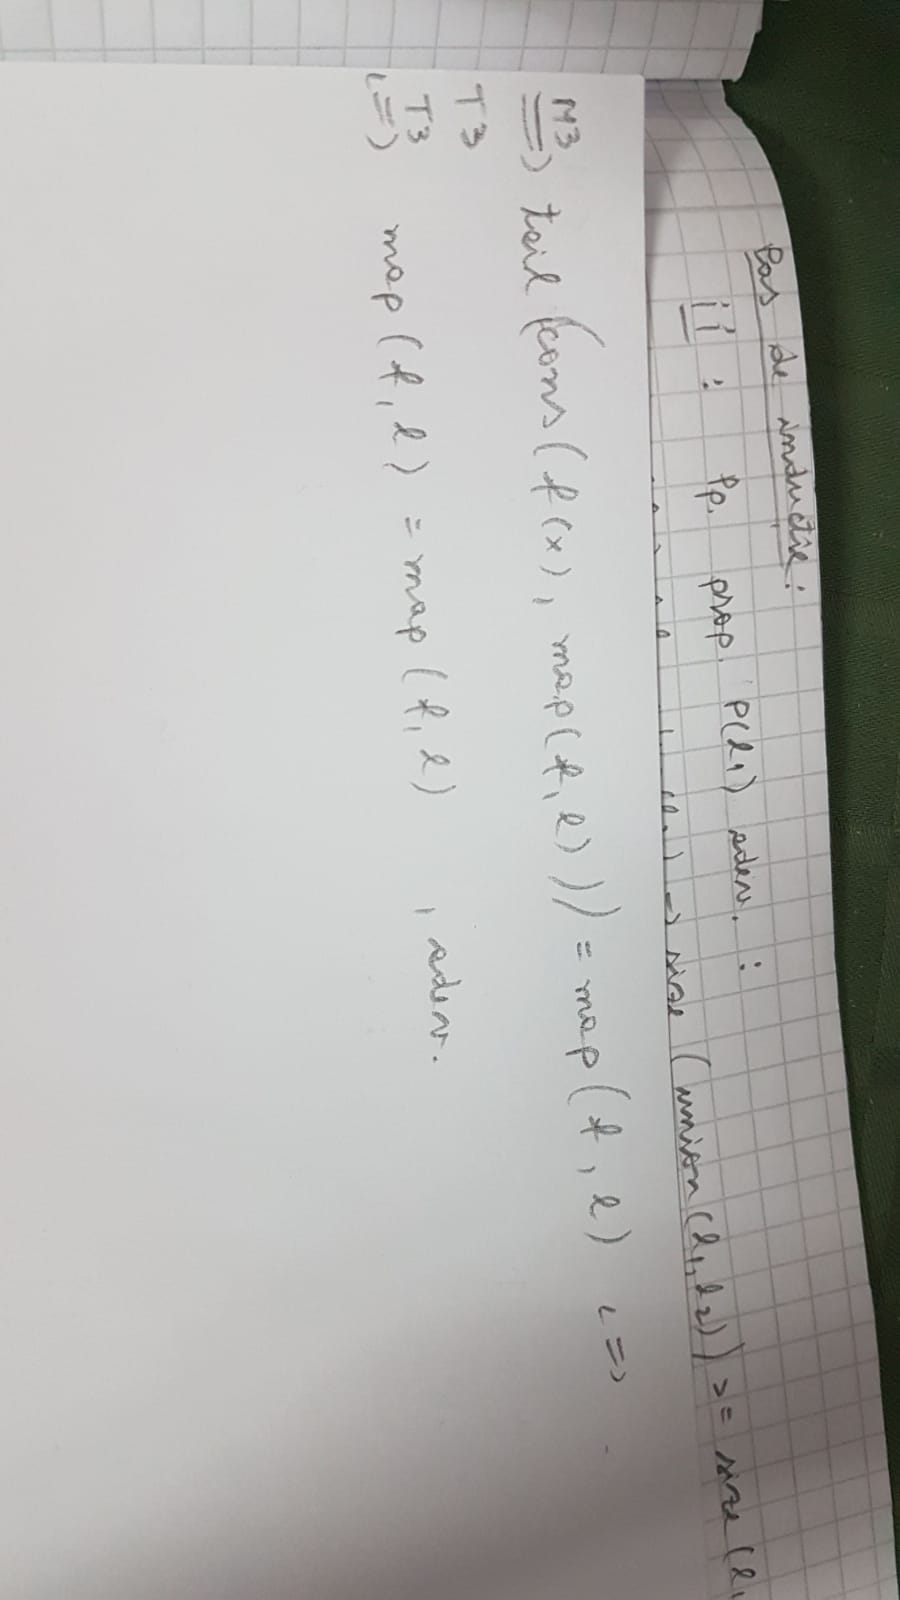 Pas de inducție:
ii : Pp. prop. P(l1) adev. :
-> size (union(l1, l2)) >= size (l1
M3
=> tail (cons(f(x), map(f, l))) = map(f, l) <=>
T3
T3
<=> map(f, l) = map(f, l) , adev.